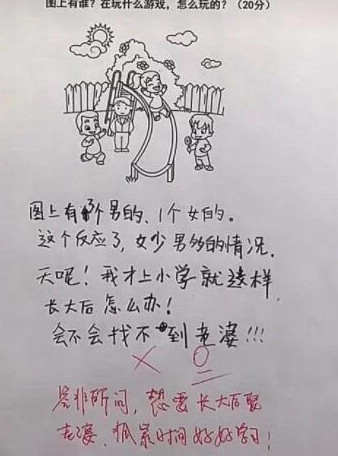 图上有谁？在玩什么游戏，怎么玩的？（20分）
图上有3个男的、1个女的。
这个反应了，女少男多的情况。
天呢！我才上小学就这样，
长大后怎么办！
会不会找不到老婆!!!
× 0
答非所问，想要长大后娶
老婆，抓紧时间好好学习！